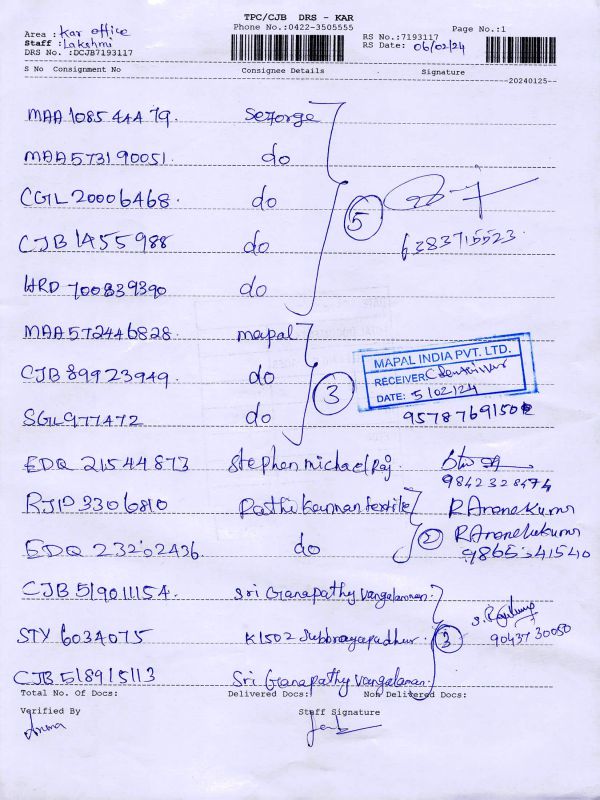 TPC/CJB DRS - KAR
Phone No.:0422-3505555
Page No.:1
Area : Kar office
Staff : Lakshmi
DRS No. :DCJB7193117
RS No.:7193117
RS Date: 06/02/24
S No Consignment No Consignee Details Signature
20240125
MAA 108544479. Sezforge
MAA573190051. do
CGIL20006468. do
CJB 1455988 do
HRD 700839390 do
5
6383715523
MAA572446828. mapal
CJB 89923949. do
SGIL977472 do
3
MAPAL INDIA PVT. LTD.
RECEIVER
DATE: 5/02/24
9578769150
EDQ 21544873 Stephen michael Raj.
9842328474
RJIP3306810 Pathi kannan textile
EDQ 23202436. do
2
9865341540
CJB 519011154. Sri Ganapathy
STY 6034075 K1502
CJB 518915113 Sri Ganapathy
3
9043730050
Total No. Of Docs: Delivered Docs: Non Delivered Docs:
Verified By Staff Signature